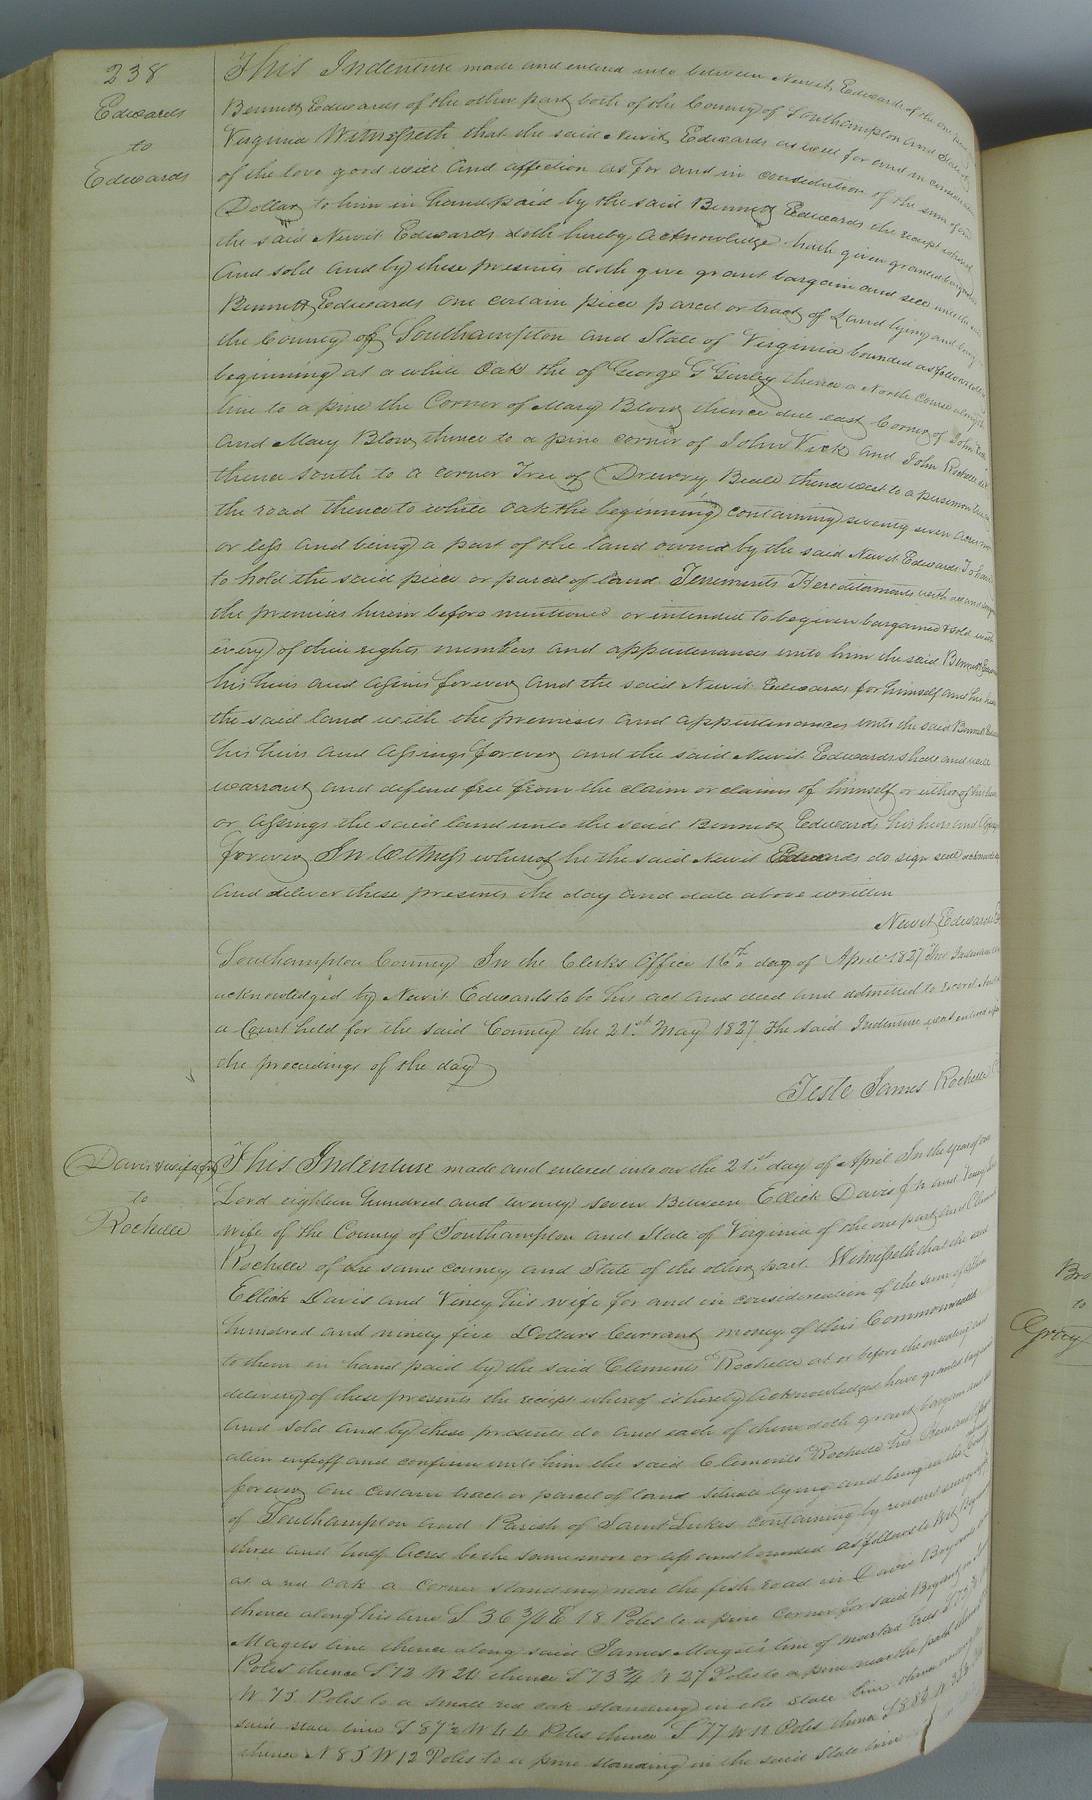 238
Edwards
to
Edwards
This Indenture made and entered into between Newit Edwards of the one part
Bennett Edwards of the other part both of the County of Southampton and State of
Virginia Witnesseth that the said Newit Edwards as well for and in consideration
of the love good will and affection as for and in consideration of the sum of one
Dollar to him in hand paid by the said Bennett Edwards the receipt whereof
the said Newit Edwards doth hereby acknowledge hath given granted bargained
and sold and by these presents doth give grant bargain and sell unto the said
Bennett Edwards one certain piece parcel or tract of Land lying and being
the County of Southampton and State of Virginia bounded as follows
beginning at a white Oak the of George G Gurley thence a North course along
line to a pine the Corner of Mary Blow thence due east Corner of John
and Mary Blow thence to a pine corner of John Vick and John Rochelle
thence South to a corner Tree of Drewry Beale thence west to a persimmon
the road thence to white oak the beginning containing seventy seven acres more
or less and being a part of the land owned by the said Newit Edwards To have
to hold the said piece or parcel of land Tenements Hereditaments with all and
the premises herein before mentioned or intended to be given bargained & sold with
every of their rights members and appurtenances unto him the said Bennett
his heirs and assigns forever and the said Newit Edwards for himself and his heirs
the said land with the premises and appurtenances unto the said Bennett
his heirs and assings forever and the said Newit Edwards shall and will
warrant and defend free from the claim or claims of himself or either of his heirs
or assings the said land unto the said Bennett Edwards his heirs and
forever In Witness whereof he the said Newit Edwards do sign seal acknowledge
and deliver these presents the day and date above written
Newit Edwards
Southampton County In the Clerks Office 16th day of April 1827 This Indenture
acknowledged by Newit Edwards to be his act and deed and admitted to record And
a Court held for the said County the 21st May 1827 The said Indenture was entered
the proceedings of the day
Teste James Rochelle
Davis
to
Rochelle
This Indenture made and entered into on the 21st day of April In the year of our
Lord eighteen hundred and twenty seven Between Ellick Davis Jr and Viney his
wife of the County of Southampton and State of Virginia of the one part and Clements
Rochelle of the same county and State of the other part. Witnesseth that the said
Ellick Davis and Viney his wife for and in consideration of the sum of
hundred and ninety five Dollars Currant money of this Commonwealth
to them in hand paid by the said Clements Rochelle at or before the ensealing and
delivery of these presents the receipt whereof is hereby acknowledged have granted bargained
and sold and by these presents do and each of them doth grant bargain and
alien enfeoff and confirm unto him the said Clements Rochelle his
forever one certain tract or parcel of land situate lying and being in the County
of Southampton and Parish of Saint Lukes containing by recent survey
three and half Acres be the same more or less and bounded as follows to wit
at a red oak a corner standing near the fish road in Davis
thence along his line S 36 3/4 E 18 Poles to a pine corner for said
Magets line thence along said James Maget's line of marked trees
Poles thence S 12 W 20 thence S 73 3/4 W 27 Poles to a pine near the path thence
W 75 Poles to a small red oak standing in the State line thence along the
said state line S 87 1/2 W 44 Poles thence S 77 W 12 Poles thence S 88
thence N 85 W 12 Poles to a pine standing in the said State line
Bro
to
Gray